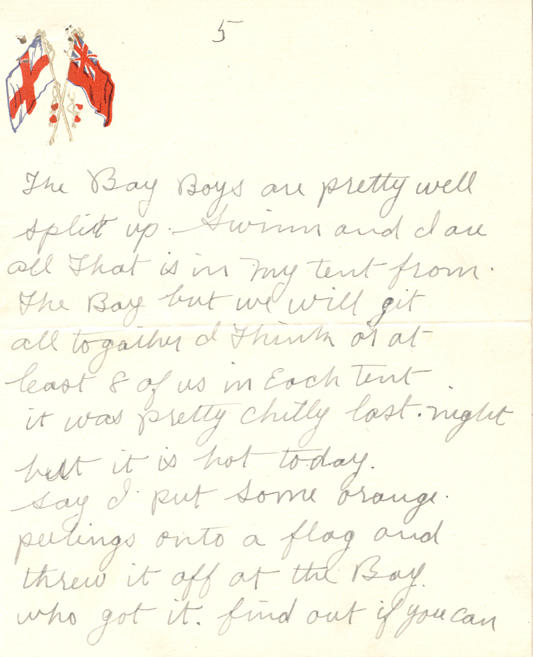 5
The Bay Boys are pretty well
split up. Gwinn and I are
all That is in my tent from.
The Bay but we will git
all togather I Think or at
least 8 of us in Each tent
it was pretty chilly last. night
but it is hot today.
say I put some orange.
peelings onto a flag and
threw it off at the Bay.
who got it. find out if you can